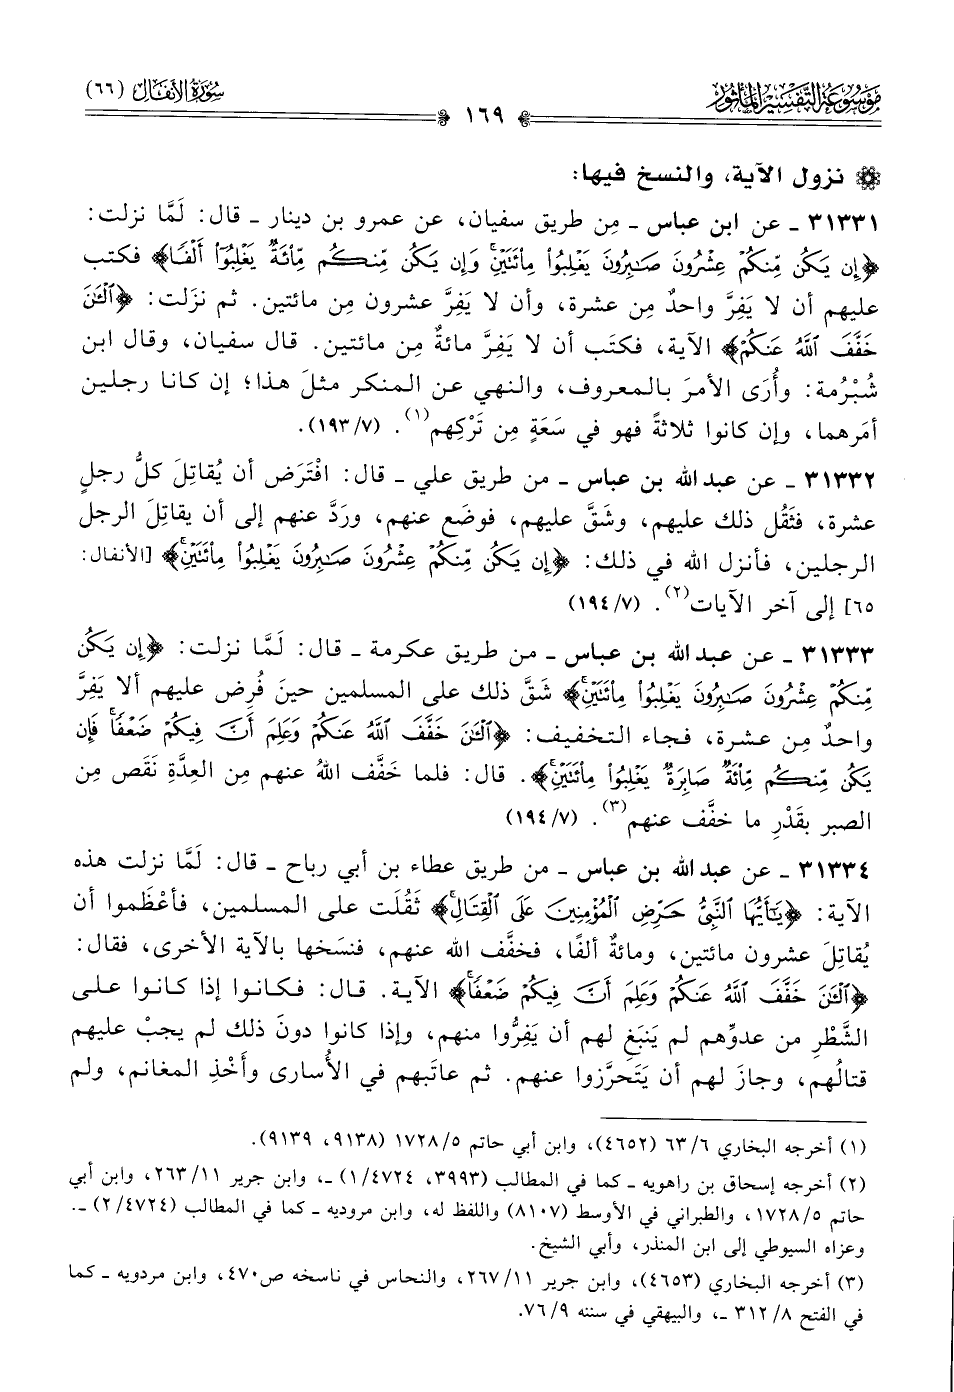 مَوْسُوعَة التَّفْسِيرِ المَأْثُور
١٦٩
سُورَةُ الأَنفَال (٦٦)
نزول الآية، والنسخ فيها:
٣١٣٣١ ـ عن ابن عباس ـ مِن طريق سفيان، عن عمرو بن دينار ـ قال: لَمَّا نزلت:
﴿إِن يَكُن مِّنكُمْ عِشْرُونَ صَٰبِرُونَ يَغْلِبُوا۟ مِا۟ئَتَيْنِۚ وَإِن يَكُن مِّنكُم مِّا۟ئَةٌ يَغْلِبُوٓا۟ أَلْفًا﴾ فكتب
عليهم أن لا يَفِرَّ واحدٌ مِن عشرة، وأن لا يَفِرَّ عشرون مِن مائتين. ثم نزَلت: ﴿ٱلْـَٰٔنَ
خَفَّفَ ٱللَّهُ عَنكُمْ﴾ الآية، فكتَب أن لا يَفِرَّ مائةٌ مِن مائتين. قال سفيان، وقال ابن
شُبْرُمة: وأُرَى الأمرَ بالمعروف، والنهي عن المنكر مثلَ هذا؛ إن كانا رجلين
أمَرهما، وإن كانوا ثلاثةً فهو في سَعَةٍ مِن تَرْكِهم(١). (٧/ ١٩٣).
٣١٣٣٢ ـ عن عبد الله بن عباس ـ من طريق علي ـ قال: افْتَرَض أن يُقاتِلَ كلُّ رجلٍ
عشرة، فثَقُل ذلك عليهم، وشَقَّ عليهم، فوضَع عنهم، ورَدَّ عنهم إلى أن يقاتِلَ الرجل
الرجلين، فأنزل الله في ذلك: ﴿إِن يَكُن مِّنكُمْ عِشْرُونَ صَٰبِرُونَ يَغْلِبُوا۟ مِا۟ئَتَيْنِۚ﴾ [الأنفال:
٦٥] إلى آخر الآيات(٢). (٧/ ١٩٤)
٣١٣٣٣ ـ عن عبد الله بن عباس ـ من طريق عكرمة ـ قال: لَمَّا نزلت: ﴿إِن يَكُن
مِّنكُمْ عِشْرُونَ صَٰبِرُونَ يَغْلِبُوا۟ مِا۟ئَتَيْنِۚ﴾ شَقَّ ذلك على المسلمين حينَ فُرِض عليهم ألا يَفِرَّ
واحدٌ مِن عشرة، فجاء التخفيف: ﴿ٱلْـَٰٔنَ خَفَّفَ ٱللَّهُ عَنكُمْ وَعَلِمَ أَنَّ فِيكُمْ ضَعْفًاۚ فَإِن
يَكُن مِّنكُم مِّا۟ئَةٌ صَابِرَةٌ يَغْلِبُوا۟ مِا۟ئَتَيْنِۚ﴾. قال: فلما خَفَّف اللهُ عنهم مِن العِدَّةِ نَقَص مِن
الصبر بقَدْرِ ما خفَّف عنهم(٣). (٧/ ١٩٤)
٣١٣٣٤ ـ عن عبد الله بن عباس ـ من طريق عطاء بن أبي رباح ـ قال: لَمَّا نزلت هذه
الآية: ﴿يَٰٓأَيُّهَا ٱلنَّبِىُّ حَرِّضِ ٱلْمُؤْمِنِينَ عَلَى ٱلْقِتَالِۚ﴾ ثَقُلَت على المسلمين، فأعْظَموا أن
يُقاتِلَ عشرون مائتين، ومائةٌ ألفًا، فخفَّف الله عنهم، فنسَخها بالآية الأخرى، فقال:
﴿ٱلْـَٰٔنَ خَفَّفَ ٱللَّهُ عَنكُمْ وَعَلِمَ أَنَّ فِيكُمْ ضَعْفًاۚ﴾ الآية. قال: فكانوا إذا كانوا على
الشَّطْرِ من عدوِّهم لم يَنبَغِ لهم أن يَفِرُّوا منهم، وإذا كانوا دونَ ذلك لم يجبْ عليهم
قتالُهم، وجازَ لهم أن يَتَحرَّزوا عنهم. ثم عاتَبهم في الأُسارى وأَخْذِ المغانم، ولم
(١) أخرجه البخاري ٦/ ٦٣ (٤٦٥٢)، وابن أبي حاتم ٥/ ١٧٢٨ (٩١٣٨، ٩١٣٩).
(٢) أخرجه إسحاق بن راهويه ـ كما في المطالب (٣٩٩٣، ٤٧٢٤/ ١) ـ، وابن جرير ١١/ ٢٦٣، وابن أبي
حاتم ٥/ ١٧٢٨، والطبراني في الأوسط (٨١٠٧) واللفظ له، وابن مروديه ـ كما في المطالب (٤٧٢٤/ ٢) ـ.
وعزاه السيوطي إلى ابن المنذر، وأبي الشيخ.
(٣) أخرجه البخاري (٤٦٥٣)، وابن جرير ١١/ ٢٦٧، والنحاس في ناسخه ص٤٧٠، وابن مردويه ـ كما
في الفتح ٨/ ٣١٢ ـ، والبيهقي في سننه ٩/ ٧٦.